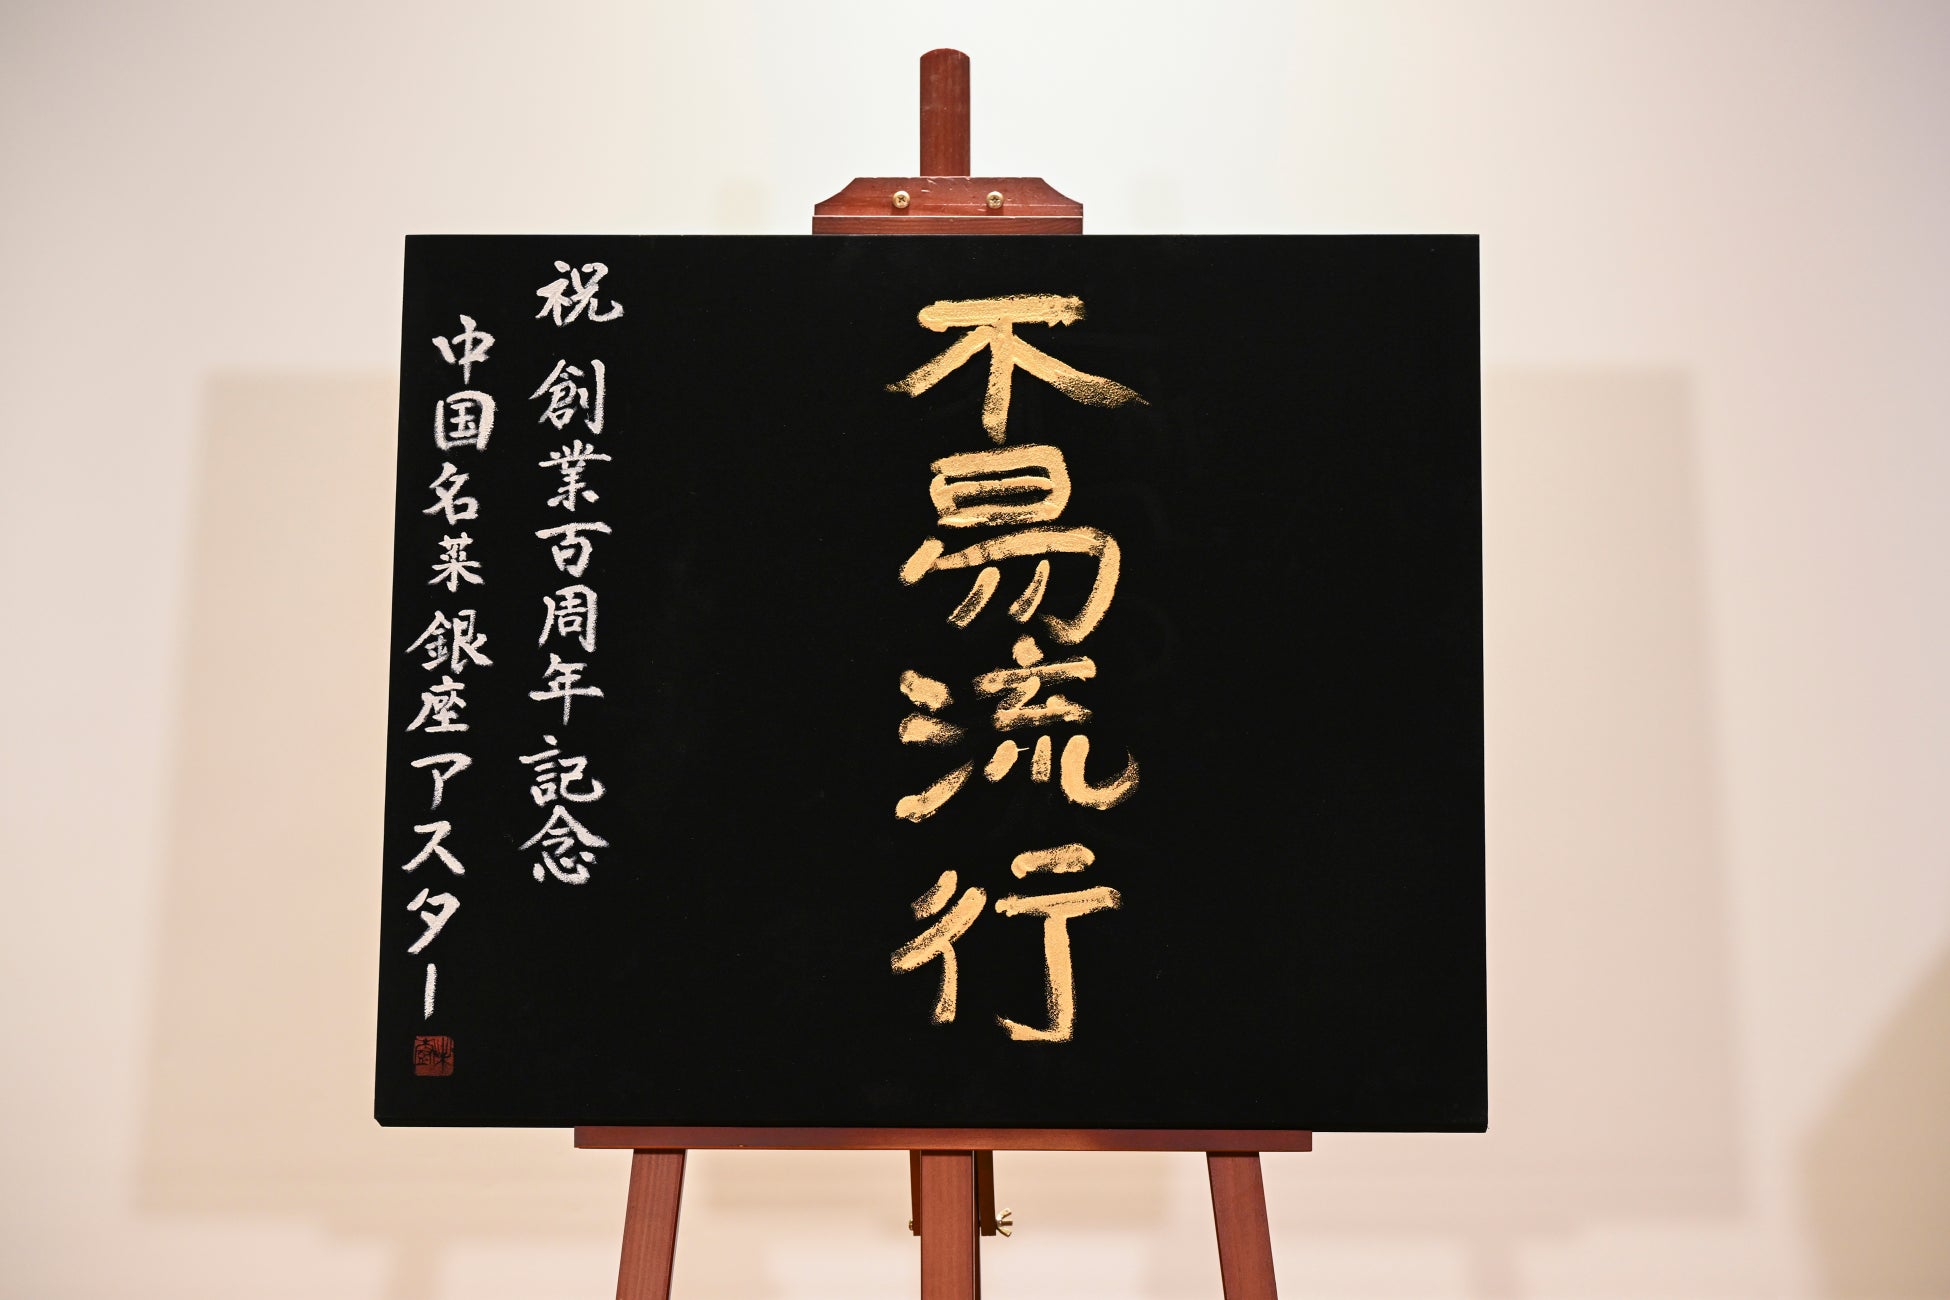 不易流行
祝 創業百周年 記念
中国名菜 銀座アスター